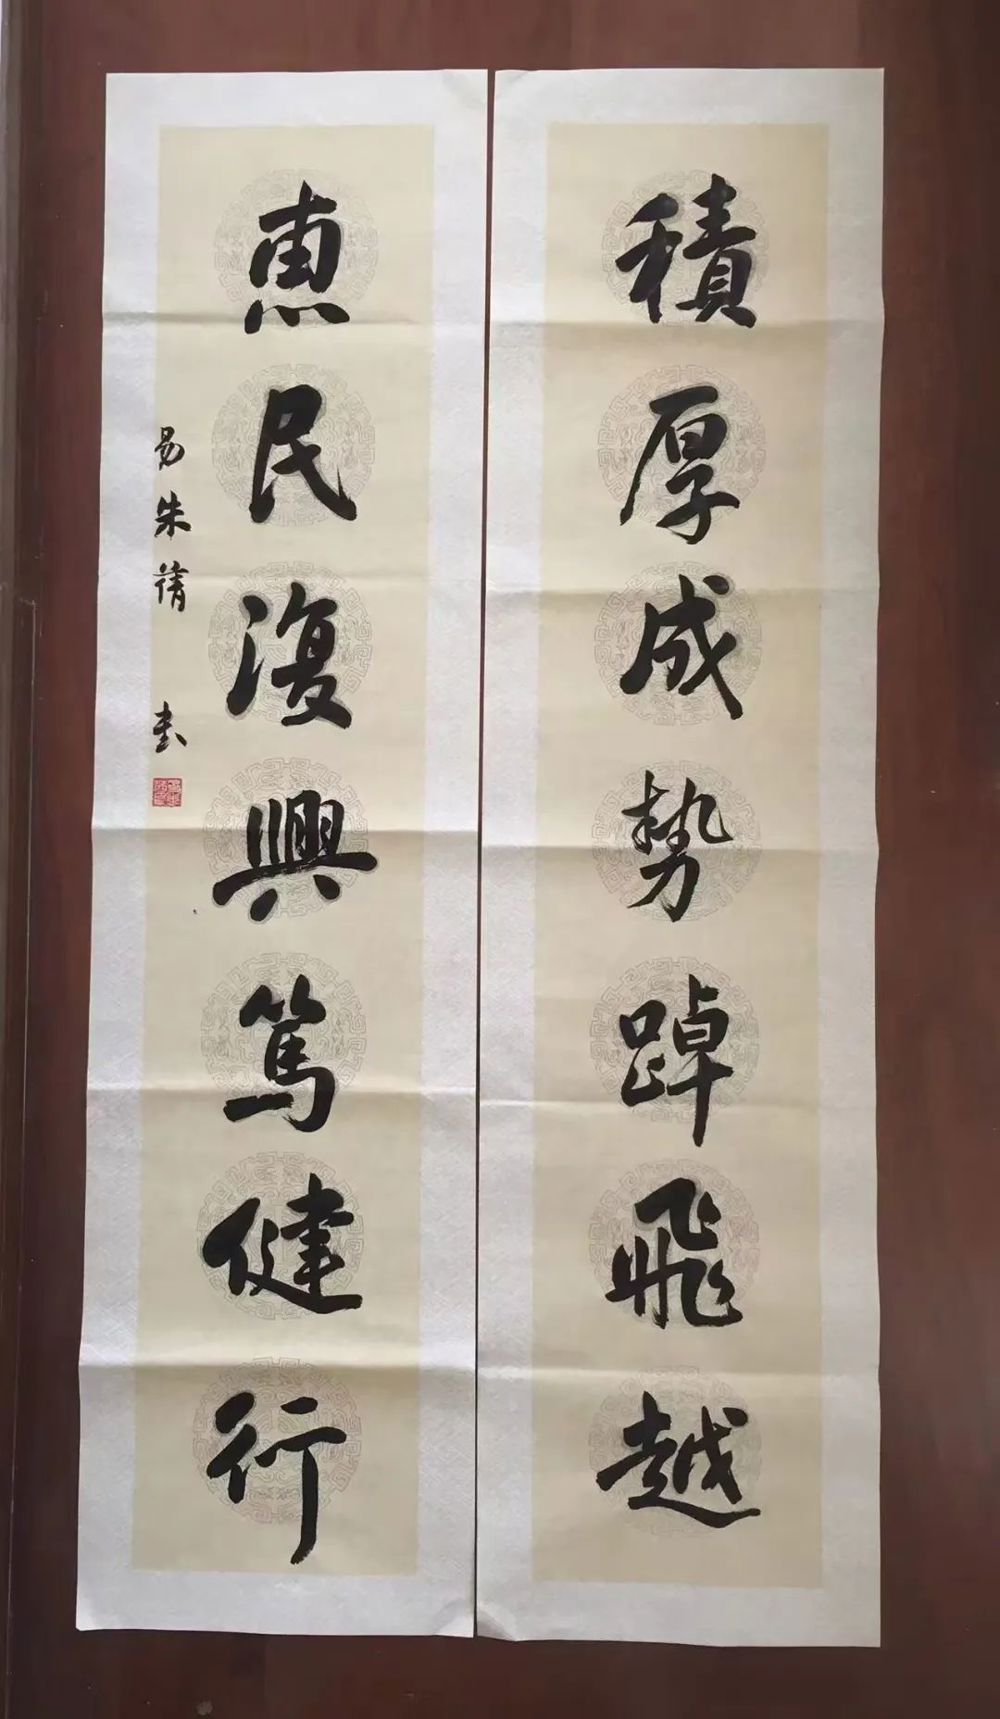 積厚成势踔飛越
惠民復興篤健行
易朱蒨 書